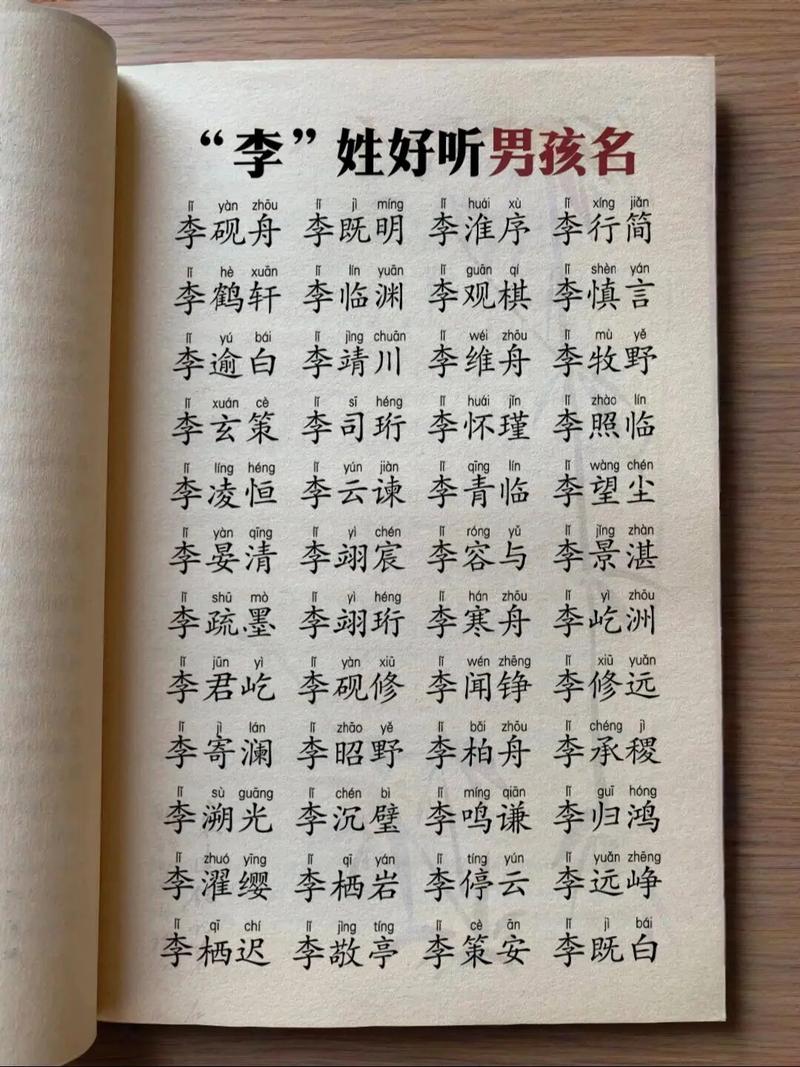 “李”姓好听男孩名
lǐ yàn zhōu lǐ jì míng lǐ huái xù lǐ xíng jiǎn
李砚舟 李既明 李淮序 李行简
lǐ hè xuān lǐ lín yuān lǐ guān qí lǐ shèn yán
李鹤轩 李临渊 李观棋 李慎言
lǐ yú bái lǐ jìng chuān lǐ wéi zhōu lǐ mù yě
李逾白 李靖川 李维舟 李牧野
lǐ xuán cè lǐ sī héng lǐ huái jǐn lǐ zhào lín
李玄策 李司珩 李怀瑾 李照临
lǐ líng héng lǐ yún jiàn lǐ qīng lín lǐ wàng chén
李凌恒 李云谏 李青临 李望尘
lǐ yàn qīng lǐ yì chén lǐ róng yǔ lǐ jǐng zhàn
李晏清 李翊宸 李容与 李景湛
lǐ shū mò lǐ yì héng lǐ hán zhōu lǐ yì zhōu
李疏墨 李翊珩 李寒舟 李屹洲
lǐ jūn yì lǐ yàn xiū lǐ wén zhēng lǐ xiū yuǎn
李君屹 李砚修 李闻铮 李修远
lǐ jì lán lǐ zhāo yě lǐ bǎi zhōu lǐ chéng jì
李寄澜 李昭野 李柏舟 李承稷
lǐ sù guāng lǐ chén bì lǐ míng qiān lǐ guī hóng
李溯光 李沉璧 李鸣谦 李归鸿
lǐ zhuó yīng lǐ qī yán lǐ tíng yún lǐ yuǎn zhēng
李濯缨 李栖岩 李停云 李远峥
lǐ qī chí lǐ jìng tíng lǐ cè ān lǐ jì bái
李栖迟 李敬亭 李策安 李既白